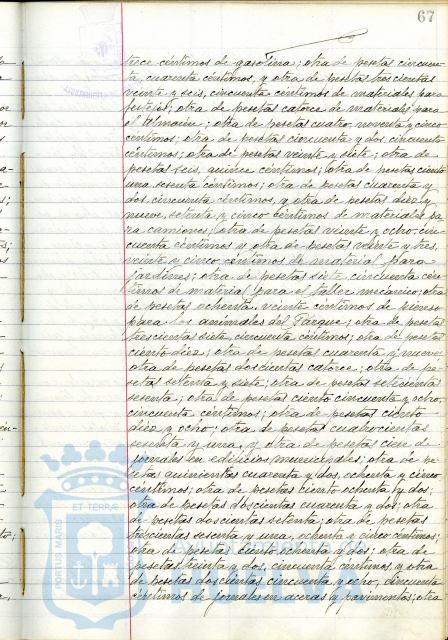 67
trece céntimos de gasolina; otra de pesetas cincuen-
ta, cuarenta céntimos, y otra de pesetas trescientas
veinte y seis, cincuenta céntimos de materiales para
festejos; otra de pesetas catorce de materiales para
el almacén; otra de pesetas cuatro, noventa y cinco
céntimos; otra de pesetas cincuenta y dos, cincuenta
céntimos; otra de pesetas veinte y siete; otra de
pesetas seis, quince céntimos; otra de pesetas ciento
una, setenta céntimos; otra de pesetas cuarenta y
dos, cincuenta céntimos, y otra de pesetas diez y
nueve, setenta y cinco céntimos de materiales pa-
ra camiones; otra de pesetas veinte y ocho, cin-
cuenta céntimos y otra de pesetas veinte y tres,
veinte y cinco céntimos de material para
jardines; otra de pesetas siete, cincuenta cén-
timos de material para el taller mecánico; otra
de pesetas ochenta, veinte céntimos de pienso
para los animales del Parque; otra de pesetas
trescientas siete, cincuenta céntimos; otra de pesetas
ciento diez; otra de pesetas cuarenta y nueve;
otra de pesetas doscientas catorce; otra de pe-
setas setenta y siete; otra de pesetas setecientas
sesenta; otra de pesetas ciento cincuenta y ocho,
cincuenta céntimos; otra de pesetas ciento
diez y ocho; otra de pesetas cuatrocientas
sesenta y una, y otra de pesetas cien de
jornales en edificios municipales; otra de pe-
setas quinientas cuarenta y dos, ochenta y cinco
céntimos; otra de pesetas ciento ochenta y dos;
otra de pesetas doscientas cuarenta y dos; otra
de pesetas doscientas setenta; otra de pesetas
trescientas sesenta y una, ochenta y cinco céntimos;
otra de pesetas ciento ochenta y dos; otra de
pesetas treinta y dos, cincuenta céntimos, y otra
de pesetas doscientas cincuenta y ocho, cincuenta
céntimos de jornales en aceras y pavimentos; otra
ET TERRÆ
PORTUS MARIS